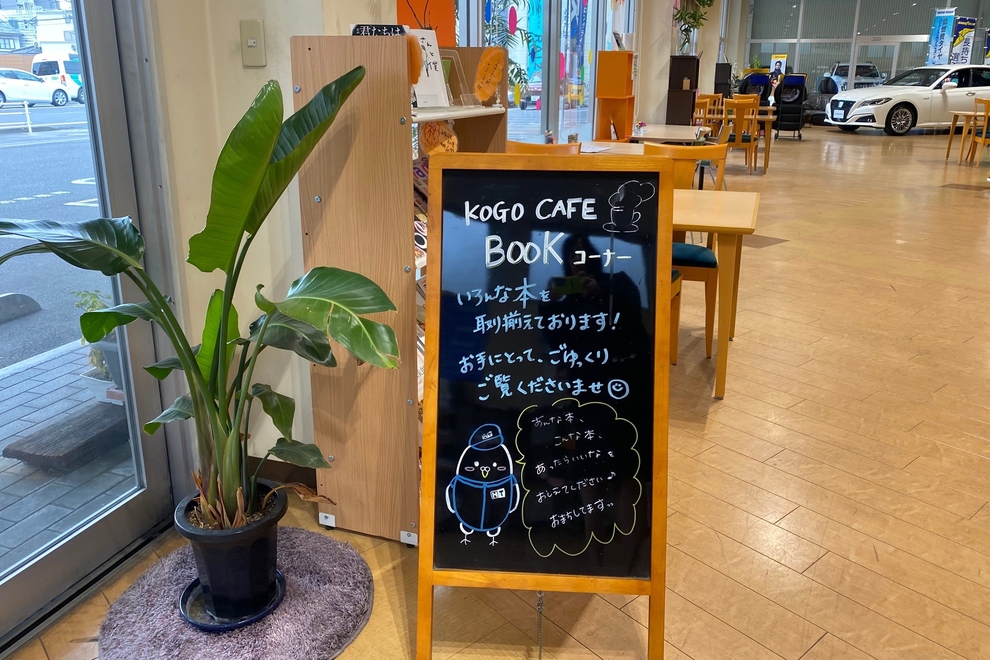 KOGO CAFE
BOOK コーナー
いろんな本を
取り揃えております!
お手にとって、ごゆっくり
ご覧くださいませ☺
あんな本、
こんな本、
あったらいいなを
おしえてください♪
おまちしてます。